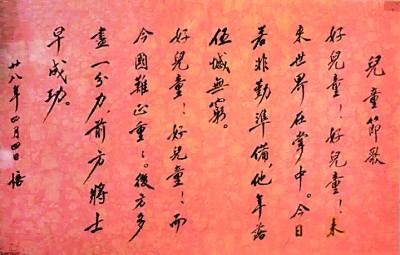 兒童節歌
好兒童！好兒童！未
来世界在掌中。今日
若非勤準備，他年落
伍憾無窮。
好兒童！好兒童！而
今國難正重々。後方多
盡一分力前方將士
早成功。
廿八年四月四日